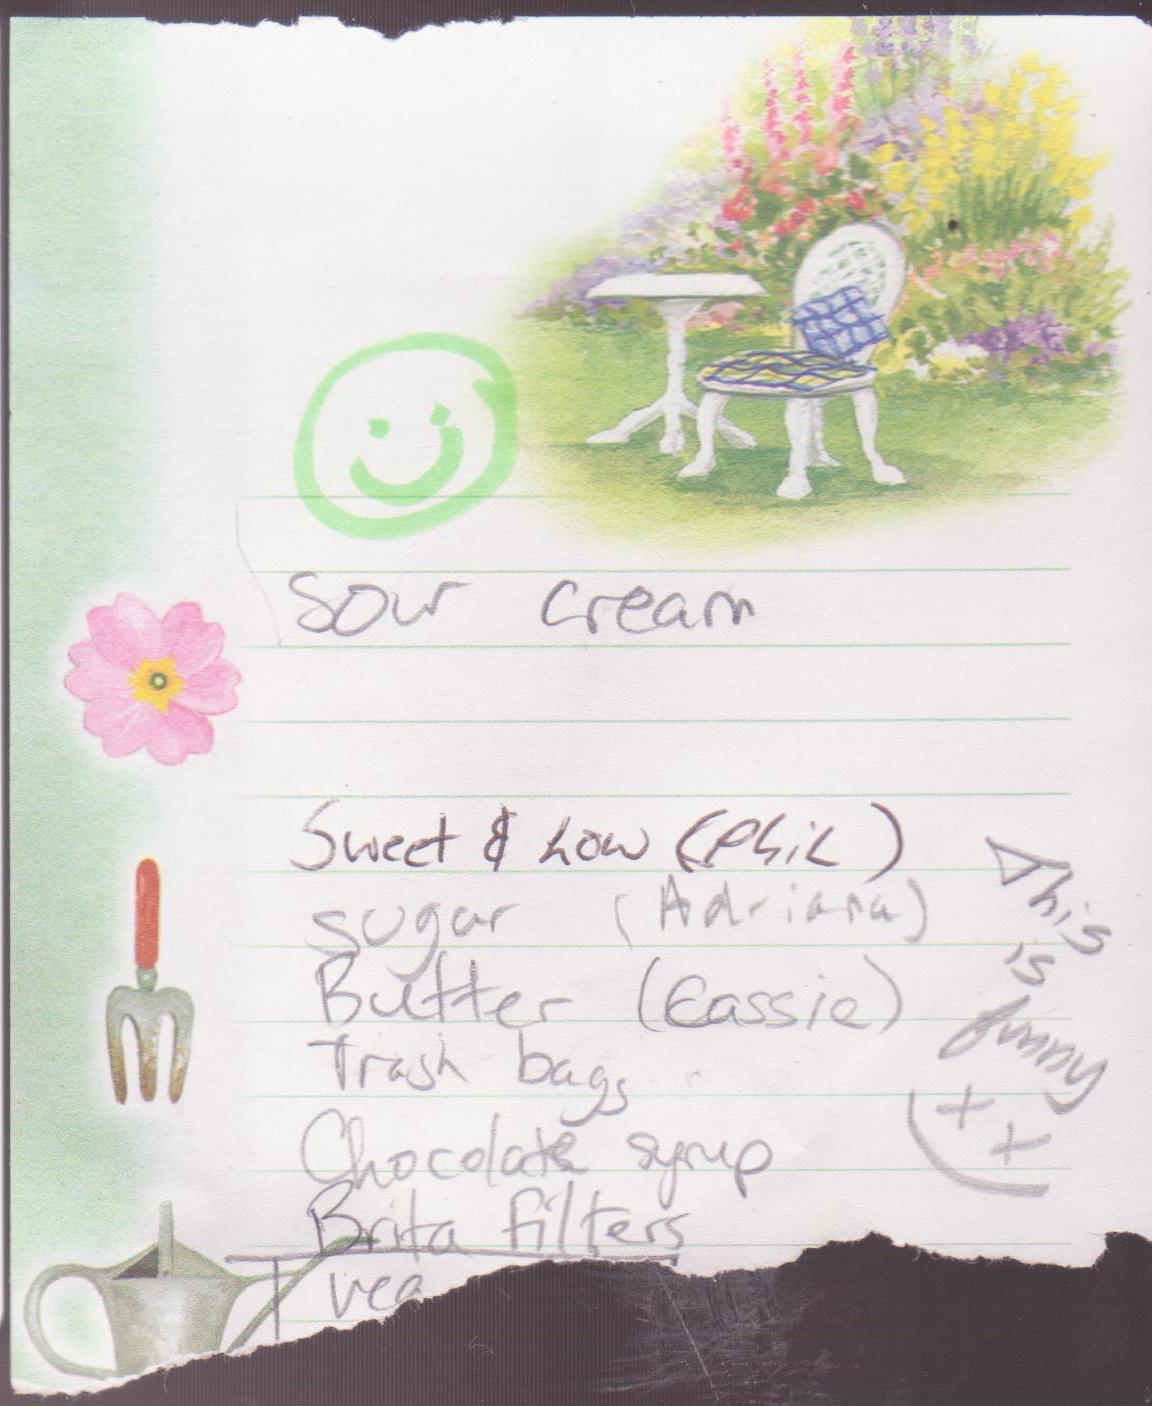 Sour cream
Sweet & Low (Phil)
sugar (Adriana)
Butter (Cassie)
Trash bags
Chocolate syrup
Brita filters
This
is
funny